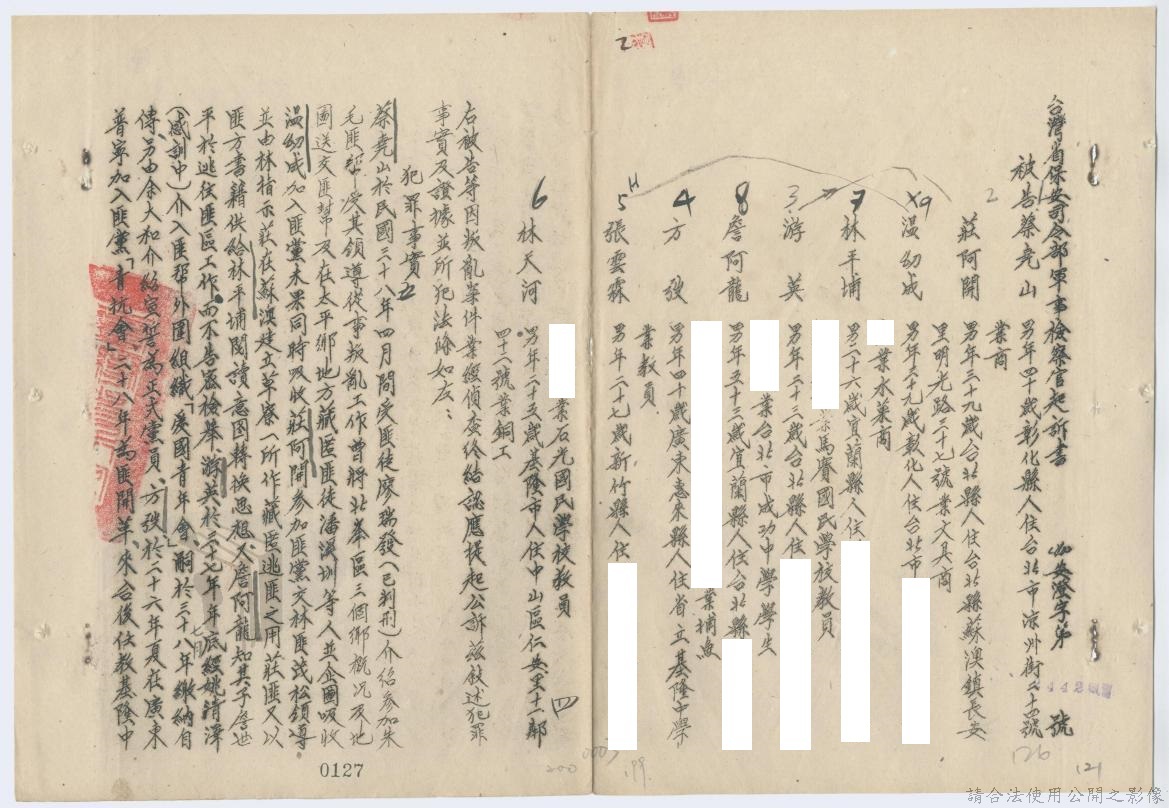 台灣省保安司令部軍事檢察官起訴書 安澄字第 號
被告蔡堯山 男年四十歲彰化縣人住台北市涼州街三十四號
業商
莊阿開 男年三十九歲台北縣人住台北縣蘇澳鎮長安
里明光路三十七號業文具商
溫幼成 男年三十九歲彰化人住台北市
業水菓商
林平埔 男二十六歲宜蘭縣人住
業馬賽國民學校教員
游英 男年二十三歲台北縣人住
業台北市成功中學學生
詹阿龍 男年五十三歲宜蘭縣人住台北縣
業捕魚
方弢 男年四十歲廣東惠來縣人住省立基隆中學
業教員
張雲霖 男年二十七歲新竹縣人住
業石光國民學校教員
林天河 男年二十五歲基隆市人住中山區仁安里十一鄰
四十二號業銅工
右被告等因叛亂案件業經偵查終結認應提起公訴茲敘述犯罪
事實及證據並所犯法條如左:
犯罪事實
蔡堯山於民國三十八年四月間受匪徒廖瑞發(已判刑)介紹參加朱
毛匪幫受其領導從事叛亂工作曾將北峯區三個鄉概況及地
圖送交匪幫及在太平鄉地方藏匿匪徒潘溪圳等人並企圖吸收
溫幼成加入匪黨未果同時吸收莊阿開參加匪黨交林匪茂松領導
並由林指示莊在蘇澳建立草寮一所作藏匿逃匪之用莊匪又以
匪方書籍供給林平埔閱讀意圖轉換思想又詹阿龍知其子詹世
平於逃往匪區工作而不告密檢舉游英於三十七年年底經姚清澤
(感訓中)介入匪幫外圍組織「愛國青年會」嗣於三十八年繳納自
傳另由余大和介紹宣誓為正式黨員方弢於二十六年夏在廣東
普寧加入匪黨「青抗會」二十八年為匪開革來台後任教基隆中
2
9
7
3
8
4
5
6
0127
126
121
199
200
請合法使用公開之影像